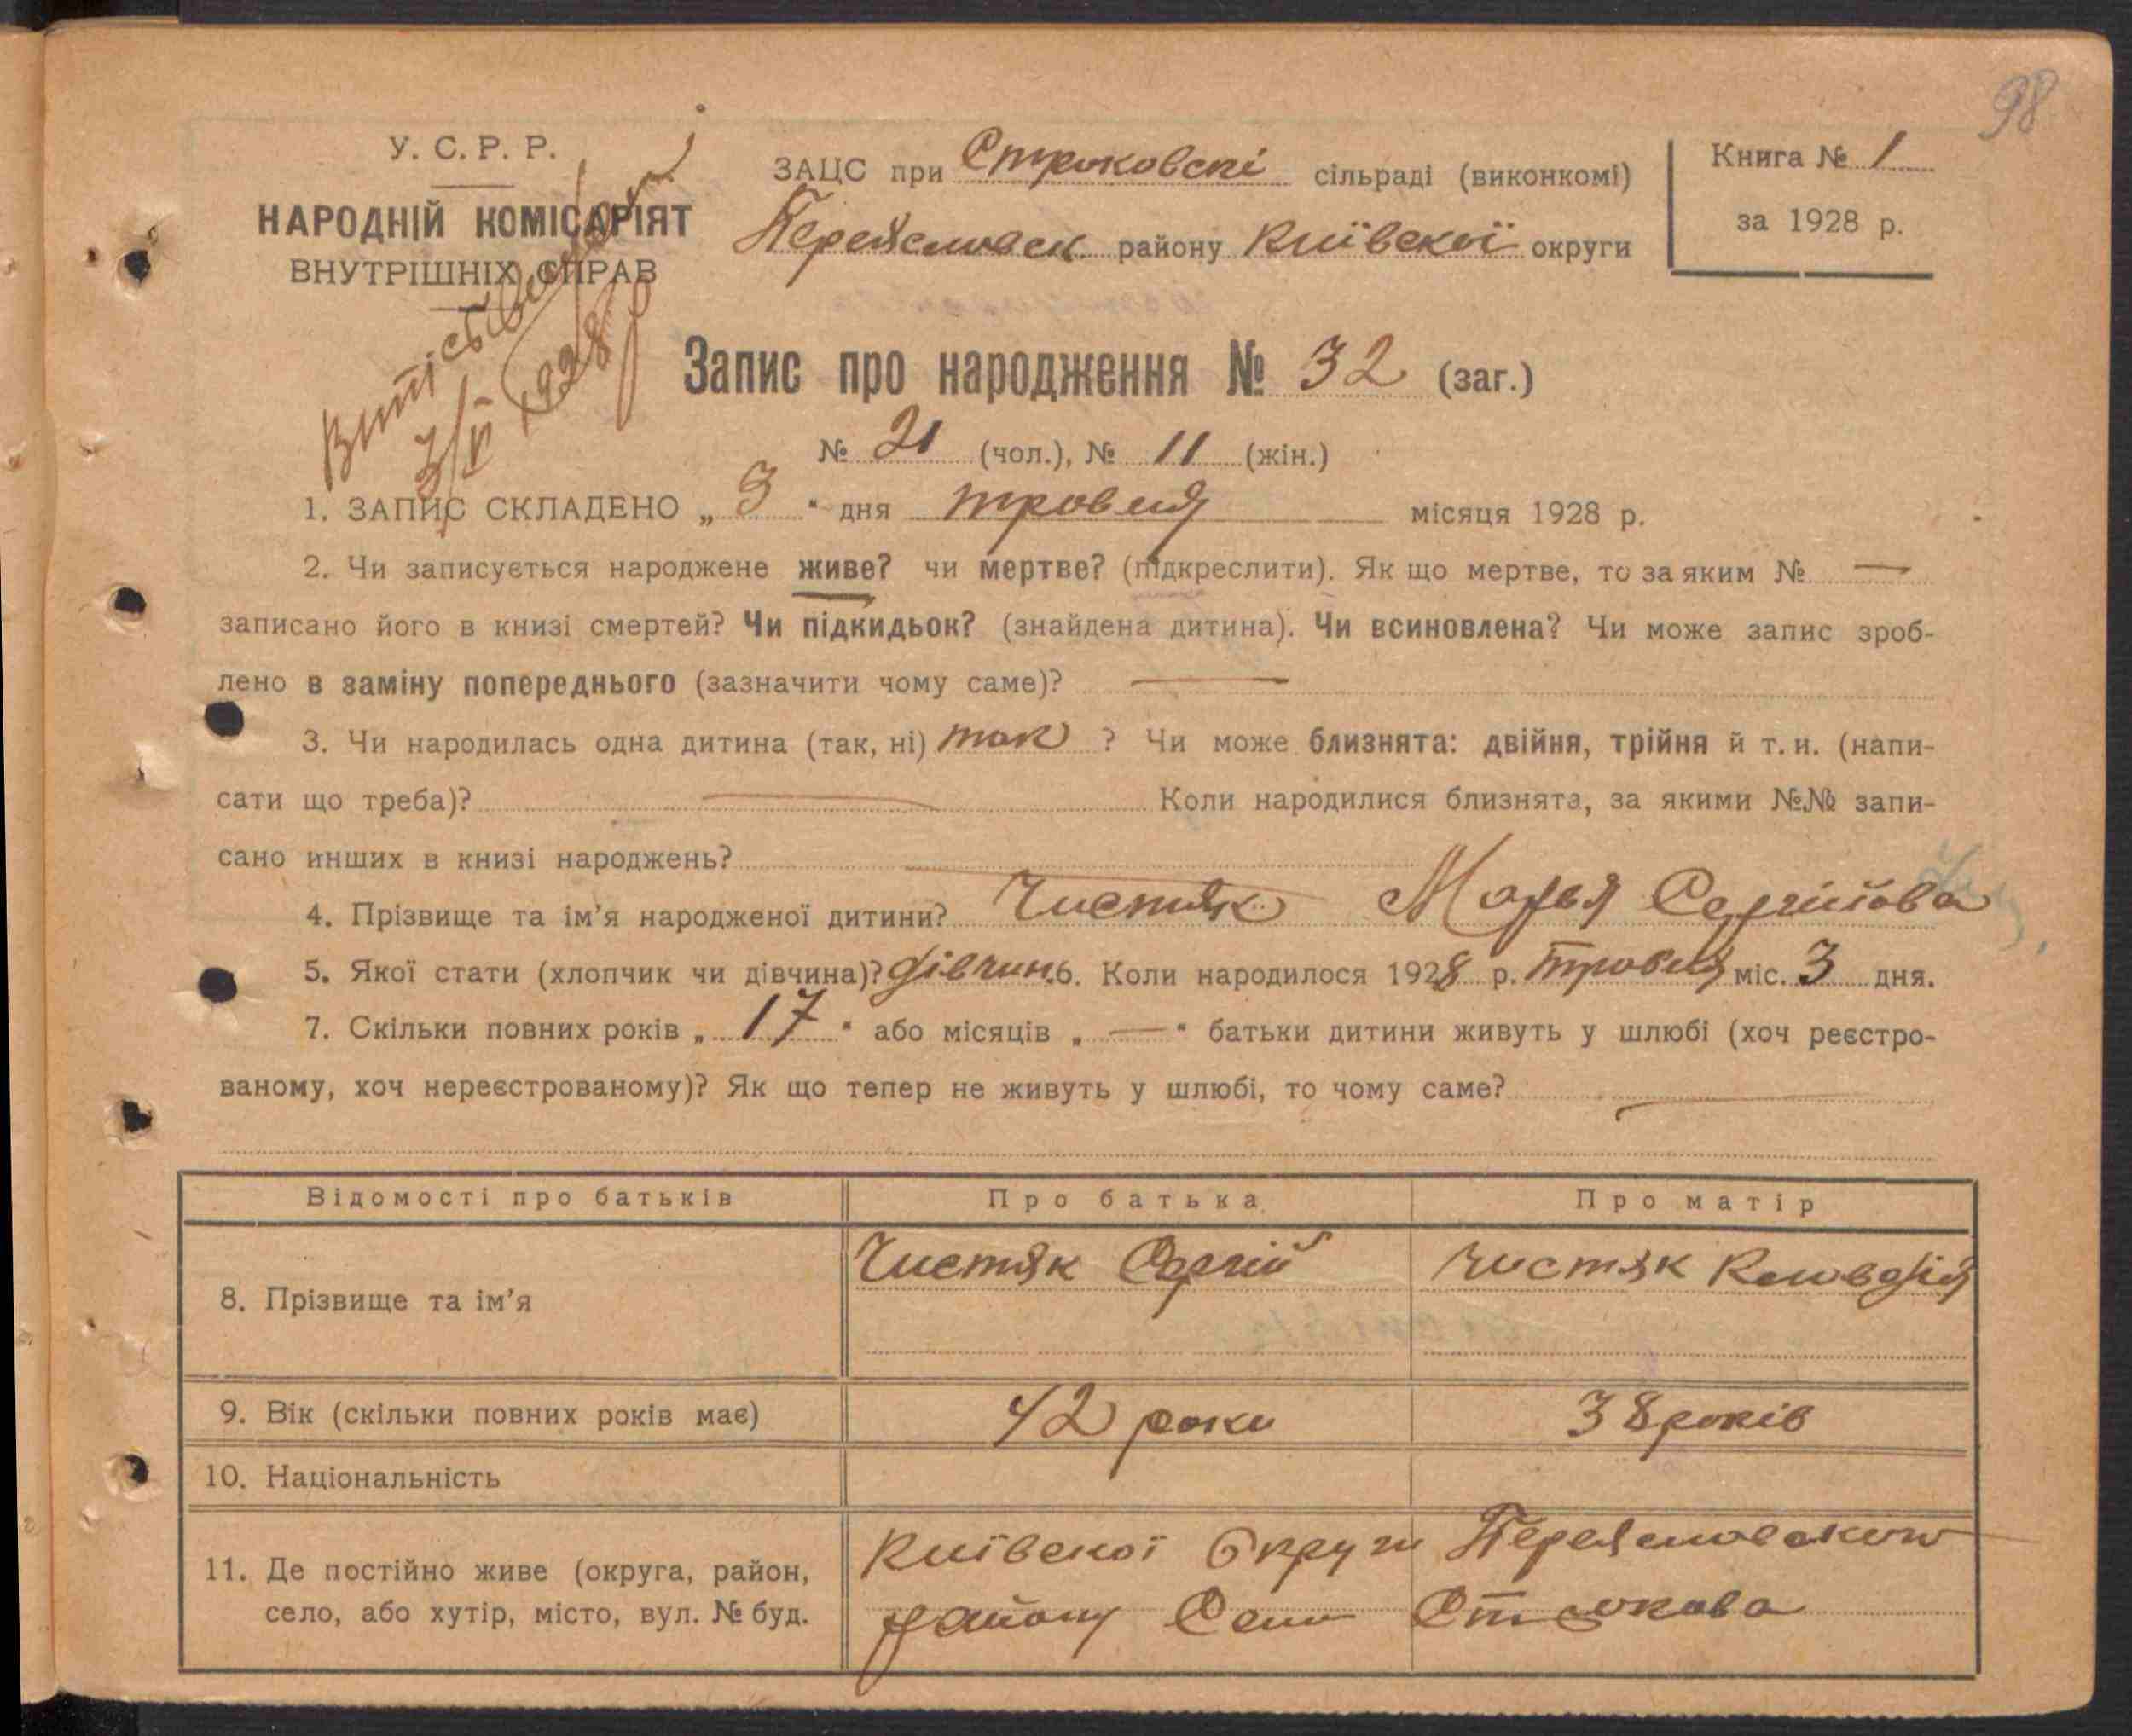 98
У. С. Р. Р.
НАРОДНІЙ КОМІСАРІЯТ
ВНУТРІШНІХ СПРАВ
ЗАЦС при Строковскі сільраді (виконкомі)
Переяславск. району Київскої округи
Книга № 1
за 1928 р.
1928 р
Запис про народження № 32 (заг.)
№ 21 (чол.), № 11 (жін.)
1. ЗАПИС СКЛАДЕНО „ 3 " дня травня місяця 1928 р.
2. Чи записується народжене живе? чи мертве? (підкреслити). Як що мертве, то за яким № —
записано його в книзі смертей? Чи підкидьок? (знайдена дитина). Чи всиновлена? Чи може запис зроб-
лено в заміну попереднього (зазначити чому саме)? —
3. Чи народилась одна дитина (так, ні) так ? Чи може близнята: двійня, трійня й т. и. (напи-
сати що треба)? — Коли народилися близнята, за якими №№ запи-
сано инших в книзі народжень? —
4. Прізвище та ім'я народженої дитини? Чистяк Марья Сергійова
5. Якої стати (хлопчик чи дівчина)? дівчин. 6. Коли народилося 1928 р. травня міс. 3 дня.
7. Скільки повних років „ 17 " або місяців „ — " батьки дитини живуть у шлюбі (хоч реєстро-
ваному, хоч нереєстрованому)? Як що тепер не живуть у шлюбі, то чому саме? —
Відомості про батьків Про батька Про матір
8. Прізвище та ім'я Чистяк Сергій Чистяк Клавдія
9. Вік (скільки повних років має) 42 роки 38 років
10. Національність
11. Де постійно живе (округа, район, село, або хутір, місто, вул. № буд. Київскої Округи Переяславского
району Село Строкова